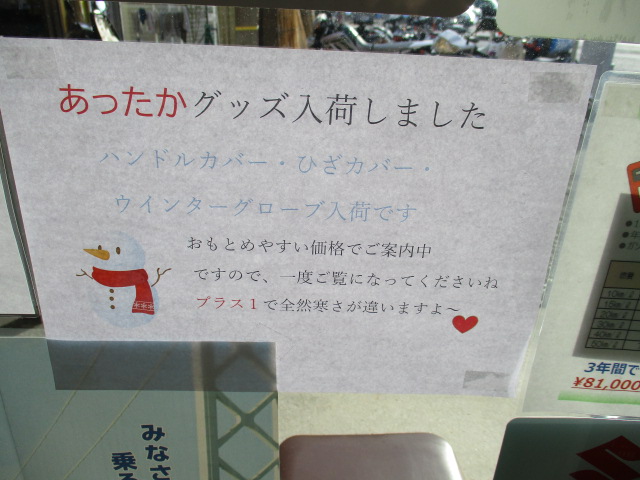 あったかグッズ入荷しました
ハンドルカバー・ひざカバー・
ウインターグローブ入荷です
おもとめやすい価格でご案内中
ですので、一度ご覧になってくださいね
プラス１で全然寒さが違いますよ～
3年間で
¥81,000
みなさ
乗る